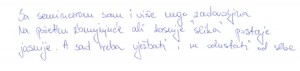 Sa seminarom sam i više nego zadovoljna.
Na početku zbunjujuće ali kasnije "slika" postaje
jasnija. A sad treba vježbati i ne odustati od sebe